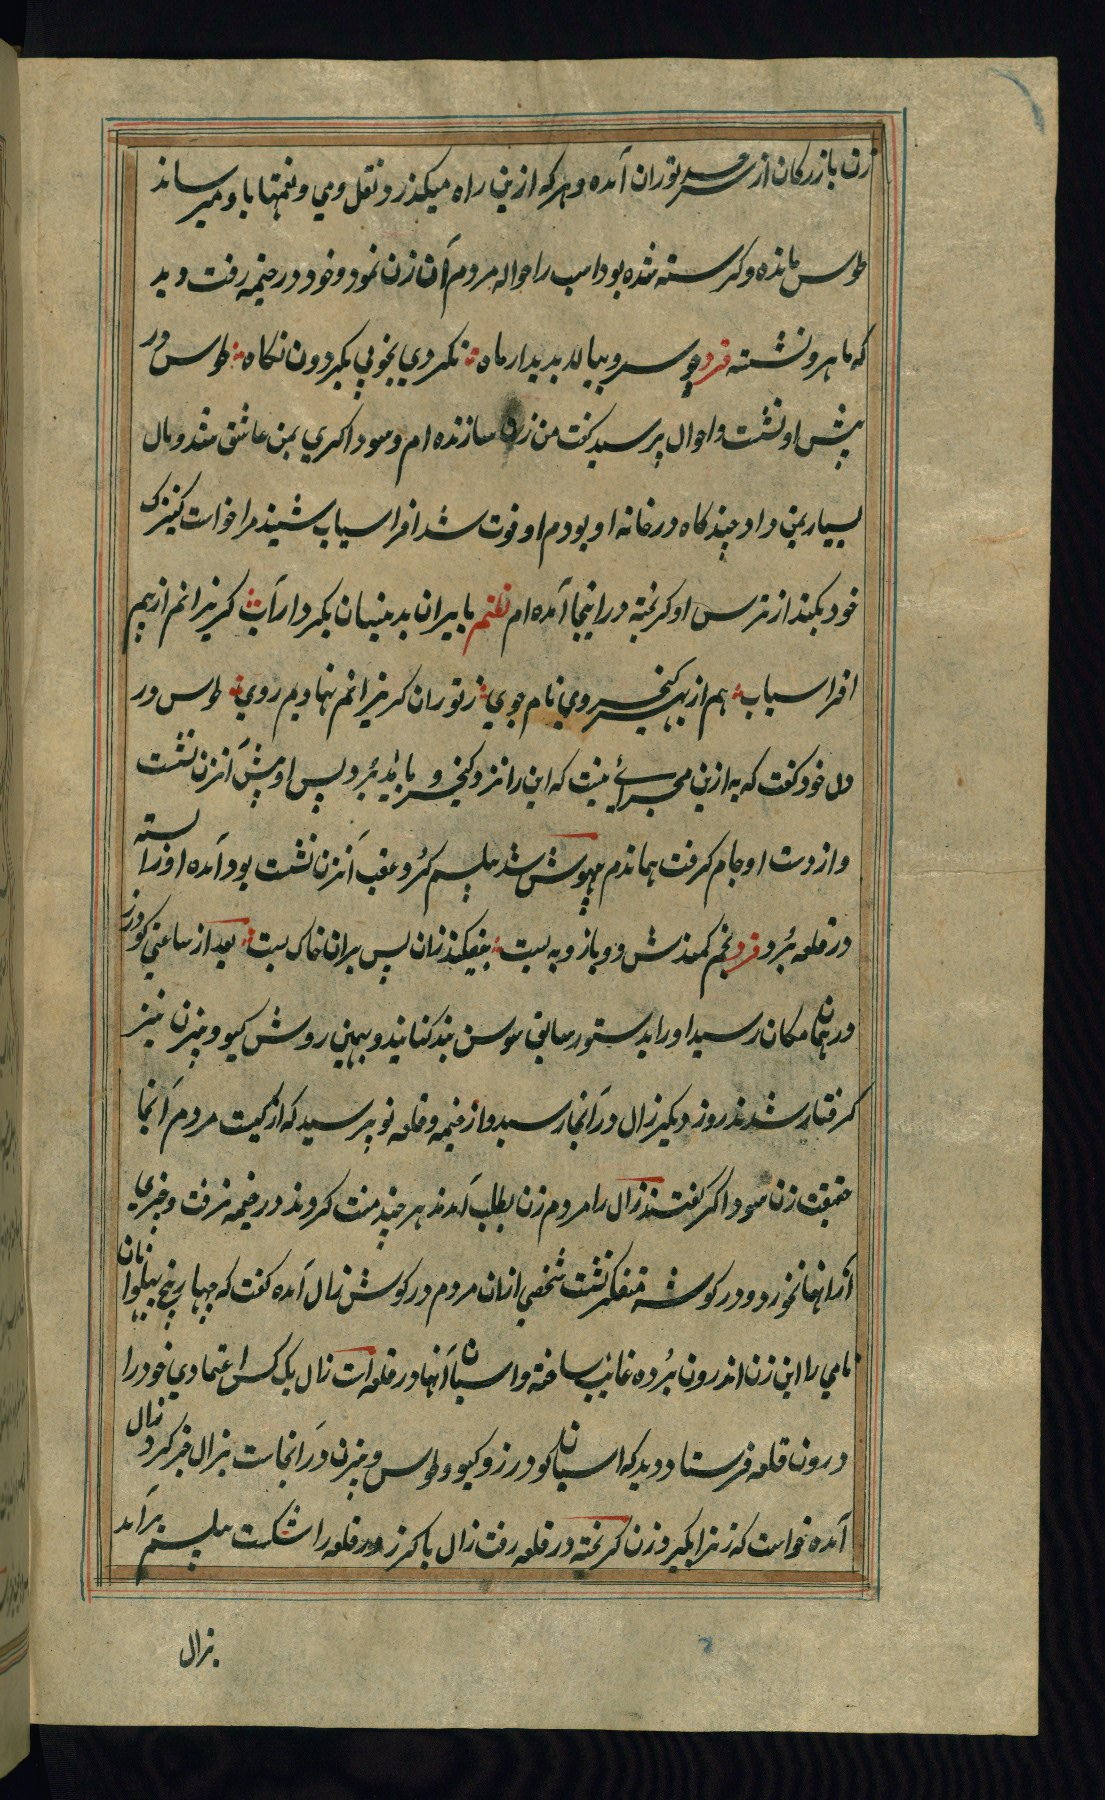 زن بازرکان از سرحد توران آمده و هرکه ازین راه میکذرد نقل و می و نعمتها باو میرساند
طوس مانده و کرسنه شده بود اسب را حواله مردم آن زن نمود و خود در خیمه رفت دید
که ماهرو نشسته فرد چو سرو ببالا بدیدار ماه نکردی بخوبی بکردون نکاه طوس در
پیش او نشست و احوال پرسید کفت من زن سازنده ام و سوداکری بمن عاشق شد و مال
بسیار بمن داد چندکاه در خانه او بودم او فوت شد افراسیاب شنید مرا خواست کنیزک
خود بکند از ترس او کریخته در اینجا آمده ام نظم با پیران بدینسان بکردار آب کریزانم از بیم
افراسیاب هم از بهر کیخسروی نام جوی ز توران کریزانم نهادیم روی طوس در
دل خود کفت که به ازین مجرائی نیست که این را نزد کیخسرو باید برد پس او پیش آنزن نشست
و از دست او جام کرفت هماندم بیهوش شد پیلسم کرد عقب آنزن نشست بود آمده او را بسته
در قلعه برد فرد بخم کمندش دو بازو به بست بیفکند زان پس بران خاک پست بعد از ساعتی کودرز
در همان مکان رسید او را بدستور سابق سوسن بند کنانید و بهمین روش کیو و بیژن نیز
کرفتار شدند روز دیکر زال در آنجا رسید و از خیمه و قلعه نو پرسید که از کیست مردم آنجا
حقیقت زن سوداکر کفتند زال را مردم زن بطلب آمدند هر چند منت کردند در خیمه نرفت و چیزی
از آنها نخورد و در کوشه متفکر نشست شخصی ازان مردم در کوش زال آمده کفت که چهار پنج پهلوانان
نامی را این زن اندرون برده غایب ساخته و اسپان آنها در قلعه است زال یک کس اعتمادی خود را
درون قلعه فرستاد دید که اسپان کودرز و کیو و طوس و بیژن در آنجاست بزال خبر کرد زال
آمده خواست که زنرا بکیرد زن کریخته در قلعه رفت زال با کرز در قلعه را شکست پیلسم برآمد
بزال